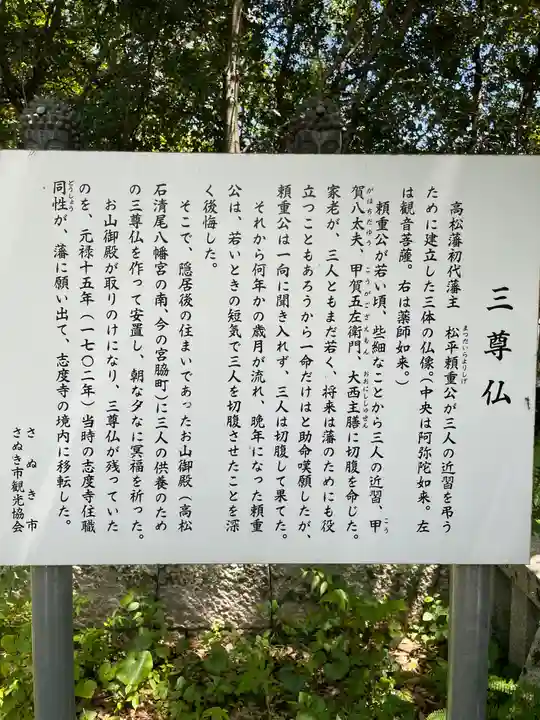 三尊仏
高松藩初代藩主　松平頼重公が三人の近習を弔う
まつだいらよりしげ
ために建立した三体の仏像。(中央は阿弥陀如来。左
は観音菩薩。右は薬師如来。)
頼重公が若い頃、些細なことから三人の近習、甲
こう
賀八太夫、甲賀五左衛門、大西主膳に切腹を命じた。
がはちだゆう　こうがござえもん　おおにししゅぜん
家老が、三人ともまだ若く、将来は藩のためにも役
立つこともあろうから一命だけはと助命嘆願したが、
頼重公は一向に聞き入れず、三人は切腹して果てた。
それから何年かの歳月が流れ、晩年になった頼重
公は、若いときの短気で三人を切腹させたことを深
く後悔した。
そこで、隠居後の住まいであったお山御殿(高松
石清尾八幡宮の南、今の宮脇町)に三人の供養のため
の三尊仏を作って安置し、朝な夕なに冥福を祈った。
お山御殿が取りのけになり、三尊仏が残っていた
のを、元禄十五年(一七〇二年)当時の志度寺住職
同性が、藩に願い出て、志度寺の境内に移転した。
どうしょう
さぬき市
さぬき市観光協会